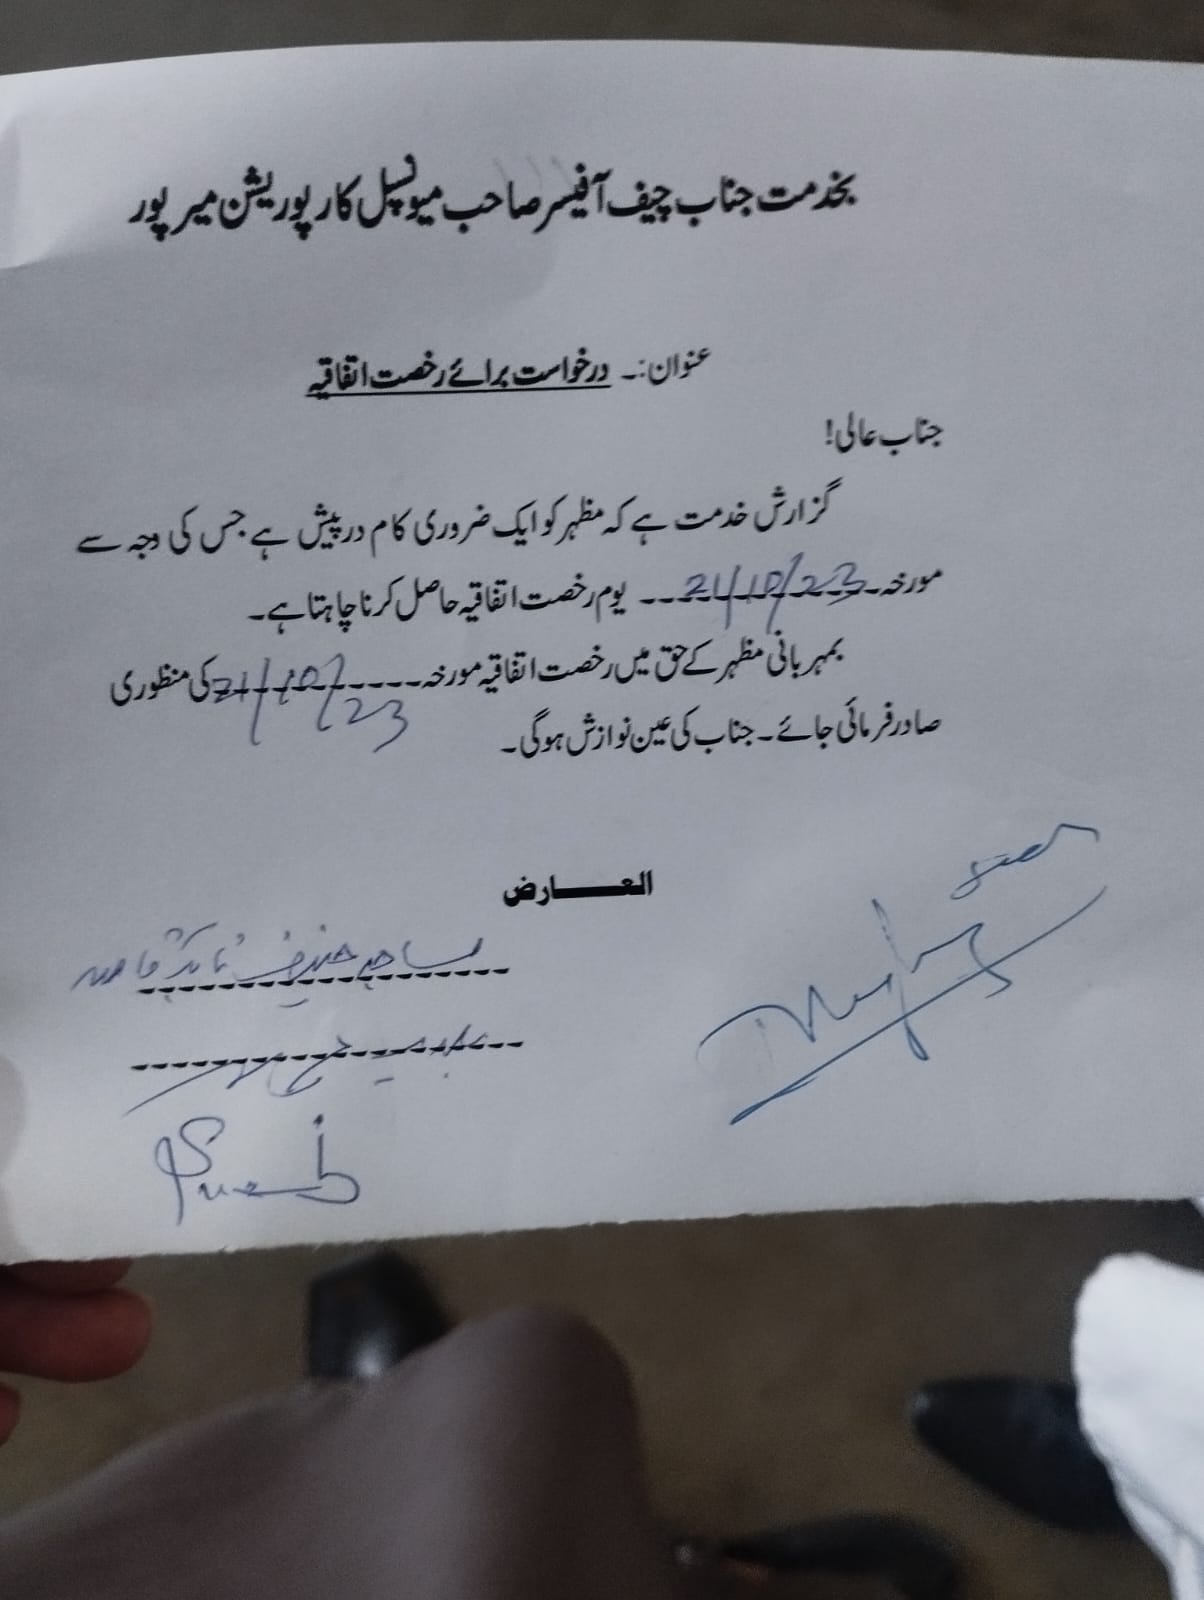 بخدمت جناب چیف آفیسر صاحب میونسپل کارپوریشن میرپور
عنوان:۔ درخواست برائے رخصت اتفاقیہ
جناب عالی!
گزارش خدمت ہے کہ مظہر کو ایک ضروری کام درپیش ہے جس کی وجہ سے
مورخہ 21/10/23 یوم رخصت اتفاقیہ حاصل کرنا چاہتا ہے۔
بمہربانی مظہر کے حق میں رخصت اتفاقیہ مورخہ 21/10/23 کی منظوری
صادر فرمائی جائے۔ جناب کی عین نوازش ہوگی۔
العارض
ساجد حنیف نائب قاصد